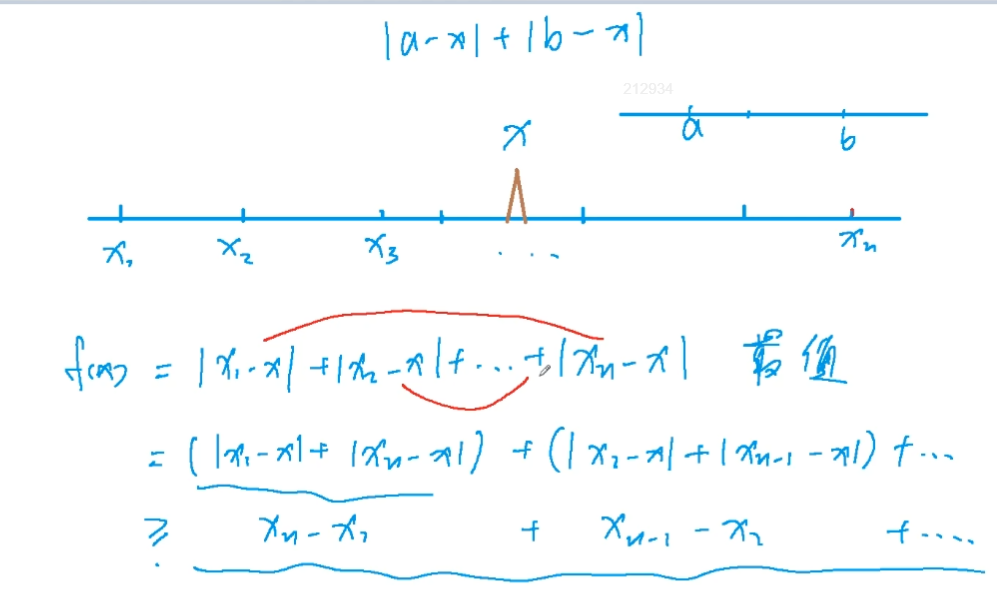 |a-x|+|b-x|
212934
a
b
x
x₁ x₂ x₃ ... xₙ
f(x) = |x₁-x|+|x₂-x|+...+|xₙ-x| 最值
= (|x₁-x|+|xₙ-x|) + (|x₂-x|+|xₙ₋₁-x|) + ...
≥ xₙ-x₁ + xₙ₋₁-x₂ + ....